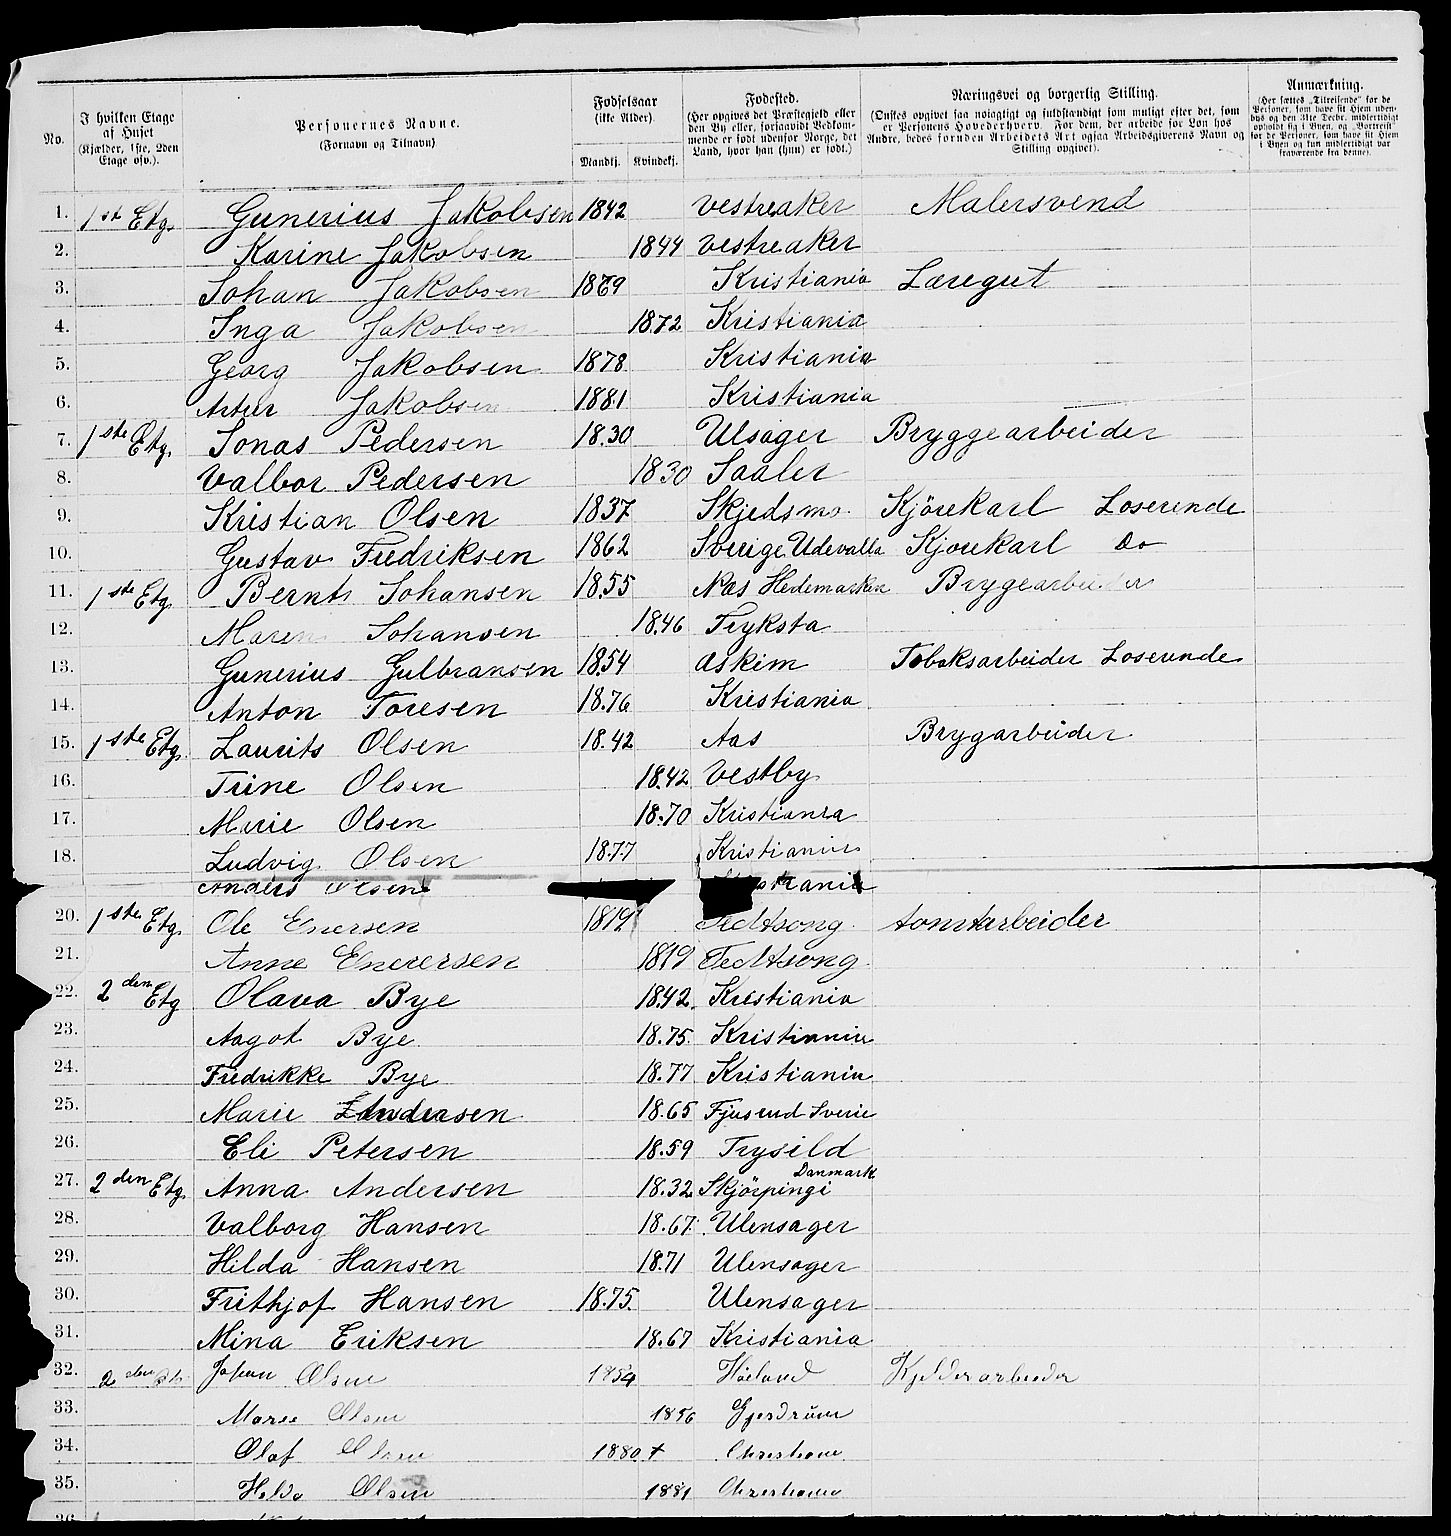 No. I hvilken Etage af Huset (Kjælder, 1ste, 2den Etage osv.). Personernes Navne. (Fornavn og Tilnavn) Fødselsaar (ikke Alder). Mandkj. Kvindekj. Fødested. (Her opgives det Præstegjeld eller den By eller, forsaavidt Vedkommende er født udenfor Norge, det Land, hvor han (hun) er født.) Næringsvei og borgerlig Stilling. (Ønskes opgivet saa nøiagtigt og fuldstændigt som muligt efter det, som er Personens Hovederhverv. For dem, der arbeide for Løn hos Andre, bedes foruden Arbeidets Art ogsaa Arbeidsgiverens Navn og Stilling opgivet). Anmærkning. (Her sættes „Tilreisende“ for de Personer, som have sit Hjem udenbys og den 31te Decbr. midlertidigt opholdt sig i Byen, og „Bortreist“ for de Personer, som have sit Hjem i Byen og kun midlertidigt var fraværende fra denne).
1. 1ste Etg. Gunerius Jakobsen 1842 Vestreaker Malersvend
2. Karine Jakobsen 1844 Vestreaker
3. Johan Jakobsen 1869 Kristiania Læregut
4. Inga Jakobsen 1872 Kristiania
5. Georg Jakobsen 1878 Kristiania
6. Artur Jakobsen 1881 Kristiania
7. 1ste Etg. Jonas Pedersen 1830 Ulsager Bryggearbeider
8. Valbor Pedersen 1830 Saaler
9. Kristian Olsen 1837 Skjedsmo Kjörekarl Loserende
10. Gustav Fredriksen 1862 Sverige Udevalla Kjorekarl Do
11. 1ste Etg. Bernts Johansen 1855 Næs Hedemarken Brygearbeider
12. Maren Johansen 1846 Tryksta
13. Gunerius Gulbransen 1854 Askim Tobaksarbeider Loserende
14. Anton Toresen 1876 Kristiania
15. 1ste Etg. Laurits Olsen 1842 Aas Brygarbeider
16. Trine Olsen 1842 Vestby
17. Marie Olsen 1870 Kristiania
18. Ludvig Olsen 1877 Kristiania
Anders Olsen
20. 1ste Etg. Ole Enersen 1819 Fedtsong tomtarbeider
21. Anne Enerersen 1819 Fedtsong
22. 2den Etg Olava Bye 1842 Kristiania
23. Aagot Bye 1875 Kristiania
24. Fredrikke Bye 1877 Kristiania
25. Marie Andersen 1865 Sverie
26. Eli Petersen 1859 Trysild
27. 2den Etg. Anna Andersen 1832 Skjörpingi Danmark
28. Valborg Hansen 1867 Ulensager
29. Hilda Hansen 1871 Ulensager
30. Frithjof Hansen 1875 Ulensager
31. Mina Eriksen 1867 Kristiania
32. 2den Johan Olsen 1854 Høland Kjelderarbeider
33. Marie Olsen 1856 Gjerdrum
34. Olaf Olsen 1880 Christiania
35. Hilda Olsen 1881 Christiania